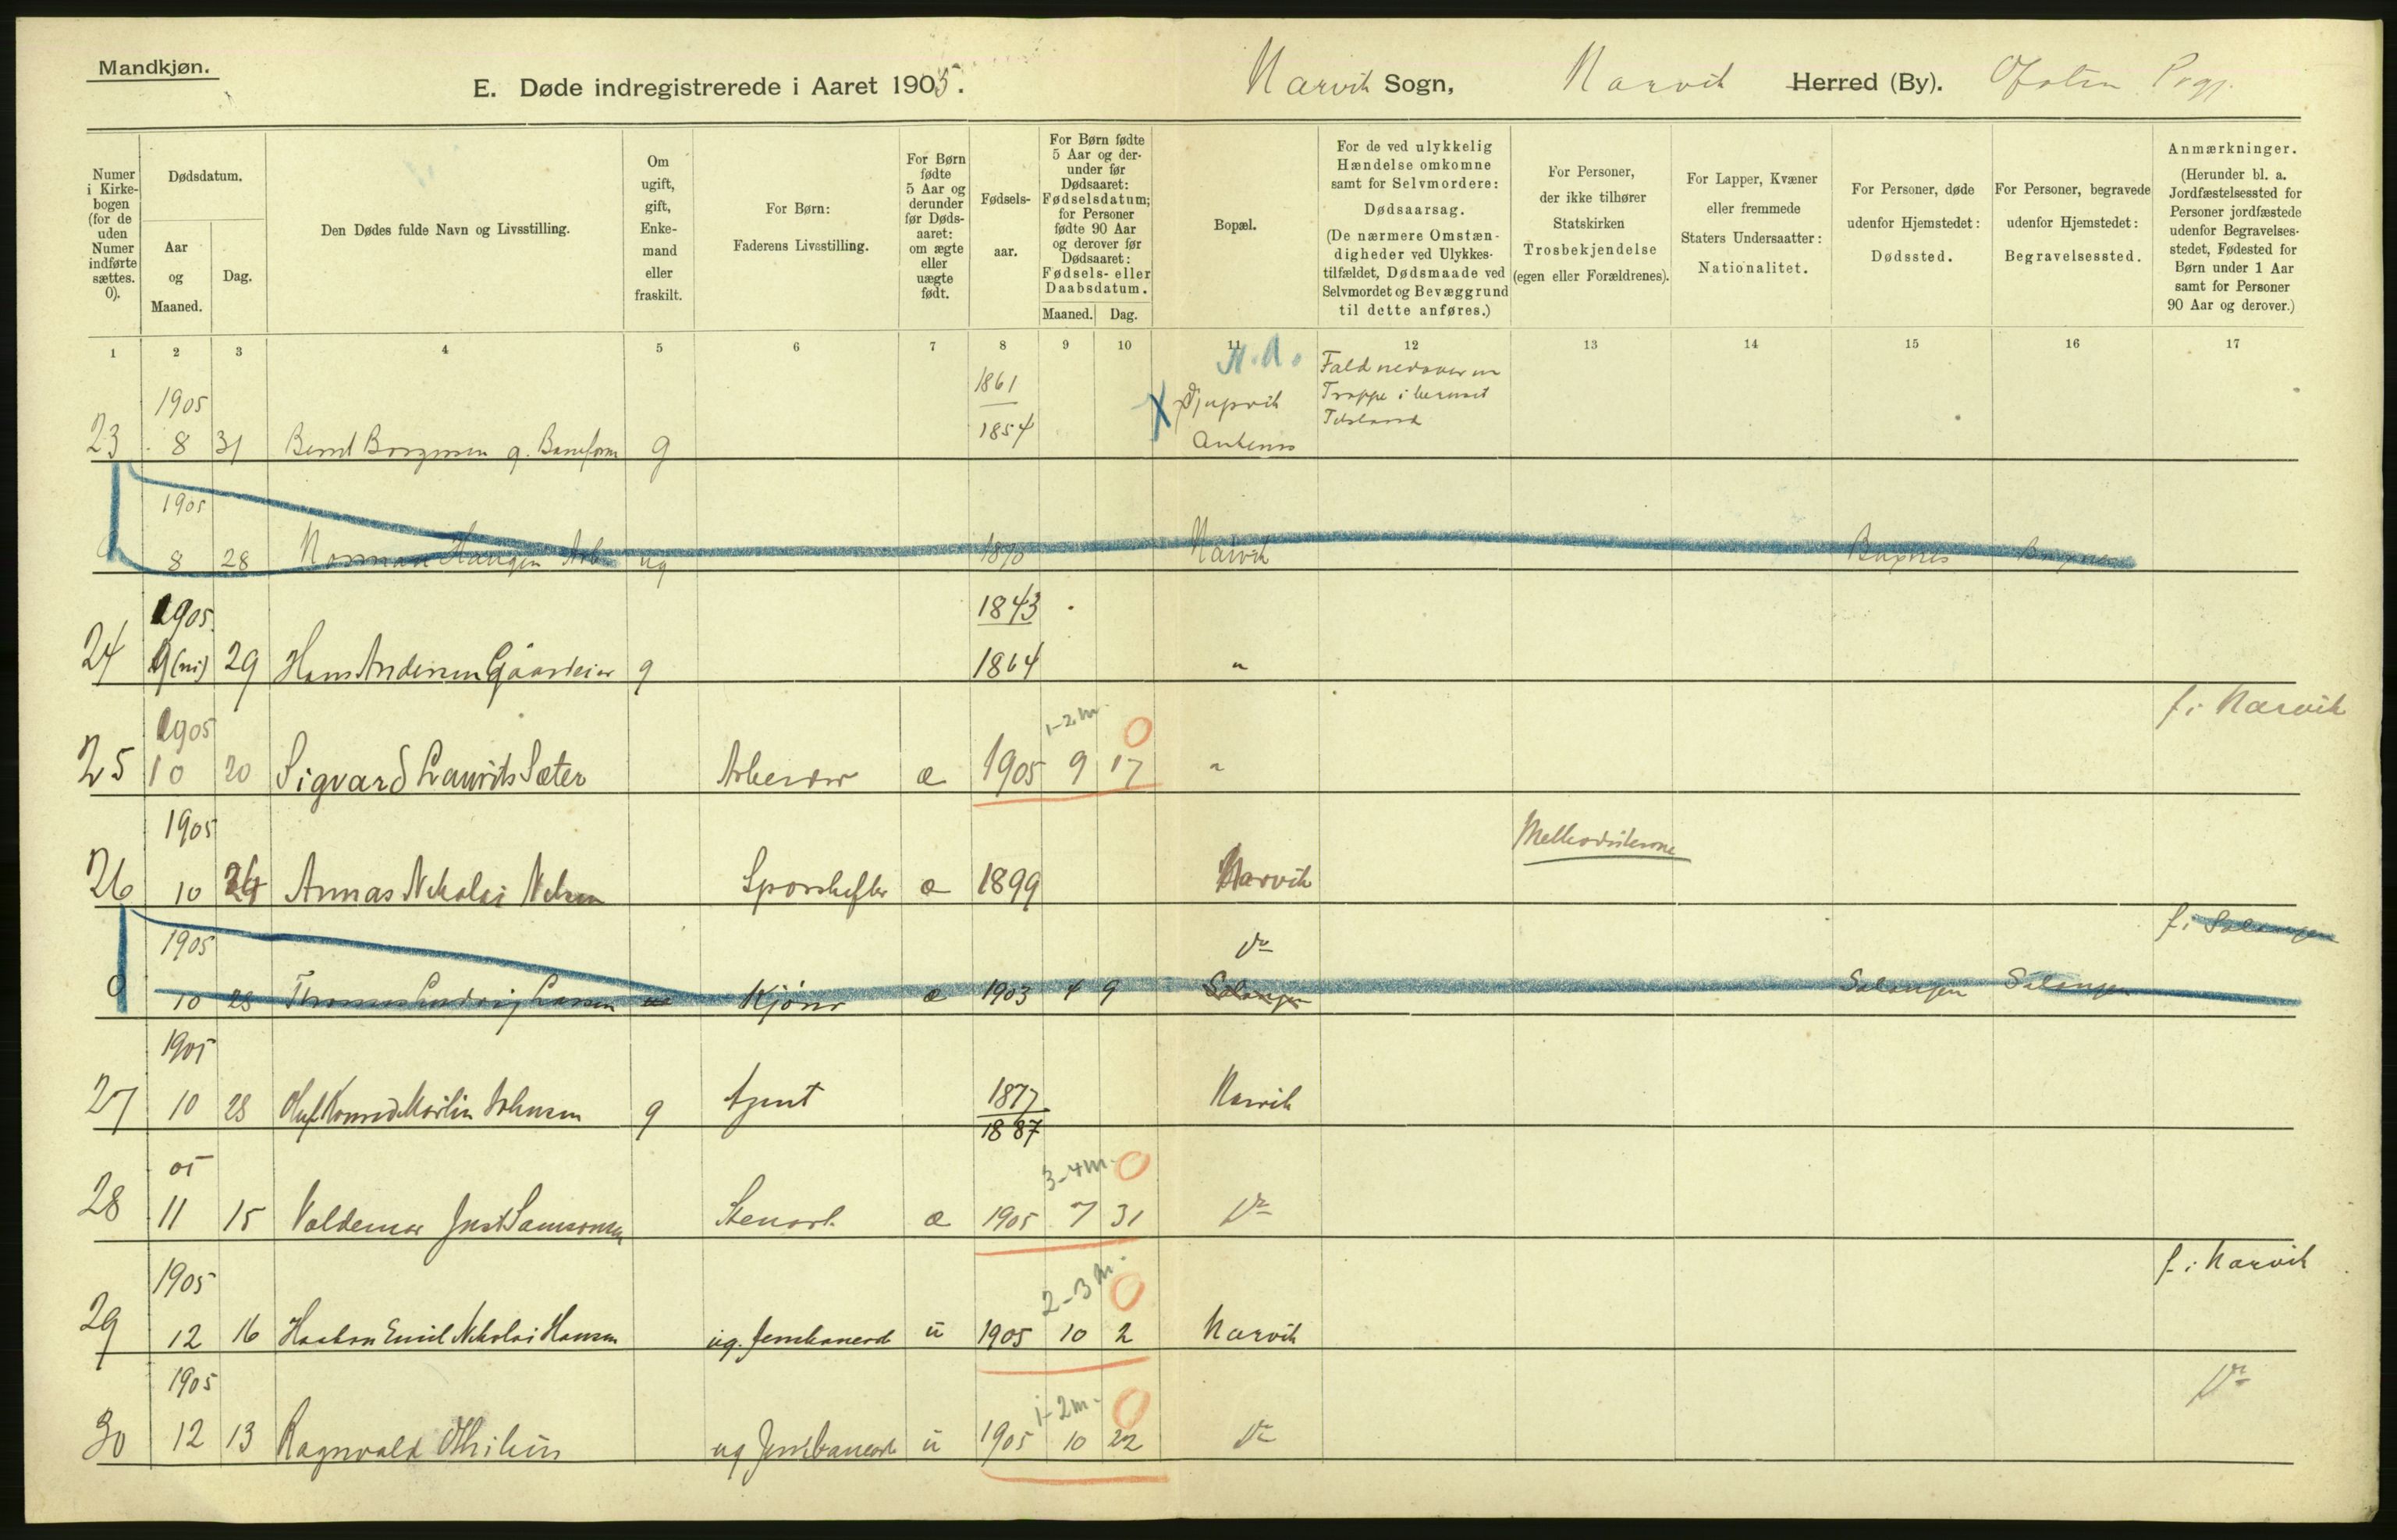 Mandkjøn.
E. Døde indregistrerede i Aaret 1905. Narvik Sogn, Narvik Herred (By). Ofoten Prgj.
Numer i Kirkebogen (for de uden Numer indførte sættes. 0).
Dødsdatum.
Aar og Maaned.
Dag.
Den Dødes fulde Navn og Livsstilling.
Om ugift, gift, Enkemand eller fraskilt.
For Børn: Faderens Livsstilling.
For Børn fødte 5 Aar og derunder før Dødsaaret: om ægte eller uægte født.
Fødselsaar.
For Børn fødte 5 Aar og derunder før Dødsaaret: Fødselsdatum; for Personer fødte 90 Aar og derover før Dødsaaret: Fødsels- eller Daabsdatum.
Maaned. Dag.
Bopæl.
For de ved ulykkelig Hændelse omkomne samt for Selvmordere: Dødsaarsag. (De nærmere Omstændigheder ved Ulykkestilfældet, Dødsmaade ved Selvmordet og Bevæggrund til dette anføres.)
For Personer, der ikke tilhører Statskirken Trosbekjendelse (egen eller Forældrenes).
For Lapper, Kvæner eller fremmede Staters Undersaatter: Nationalitet.
For Personer, døde udenfor Hjemstedet: Dødssted.
For Personer, begravede udenfor Hjemstedet: Begravelsessted.
Anmærkninger. (Herunder bl. a. Jordfæstelsessted for Personer jordfæstede udenfor Begravelsesstedet, Fødested for Børn under 1 Aar samt for Personer 90 Aar og derover.)
1 2 3 4 5 6 7 8 9 10 11 12 13 14 15 16 17
1905 1861 Djupvik Fald nedover en
Trappe i beruset
Tilstand
23 8 31 Bernt g. 1854 Ankenes
1905
0 8 28 Haugen Arb ug 1870 Narvik Buxnes Buxnes
1905 1843
24 9 (ni) 29 Hans Andersen Gaardeier g 1864 "
1905 1-2 m. 0 f. i Narvik
25 10 20 Sigvard Laurits Sæter Arbeider æ 1905 9 17 "
1905 Methodisterne
26 10 24 Annas Nikolai Nelsen Sporskifter æ 1899 Narvik
1905 do f. i Salangen
0 10 28 Thomas Ludvig Larsen Kjører æ 1903 4 9 Salangen Salangen Salangen
1905
27 10 28 Oluf Konrad Martin Johnsen g Agent 1877 Narvik
1887
05 3-4 m. 0
28 11 15 Valdemar Just Samsonsen Stenarb. æ 1905 7 31 do
1905 2-3 m. 0 f. i Narvik
29 12 16 Haakon Emil Nikolai Hansen ug. Jernbanearb u 1905 10 2 Narvik
1905 1-2 m. 0 do
30 12 13 Ragnvald ug Jernbanearb u 1905 10 22 do